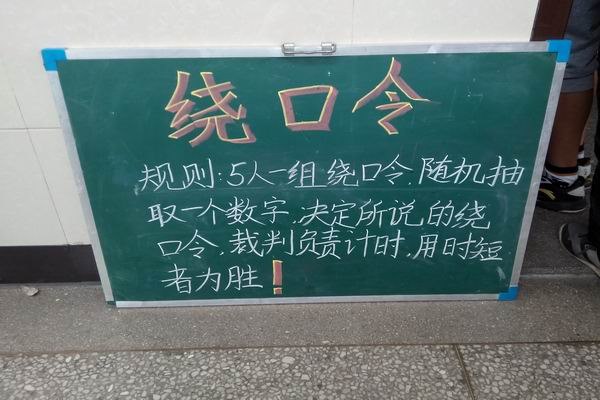 绕口令
规则:5人一组绕口令,随机抽
取一个数字,决定所说的绕
口令,裁判负责计时,用时短
者为胜!